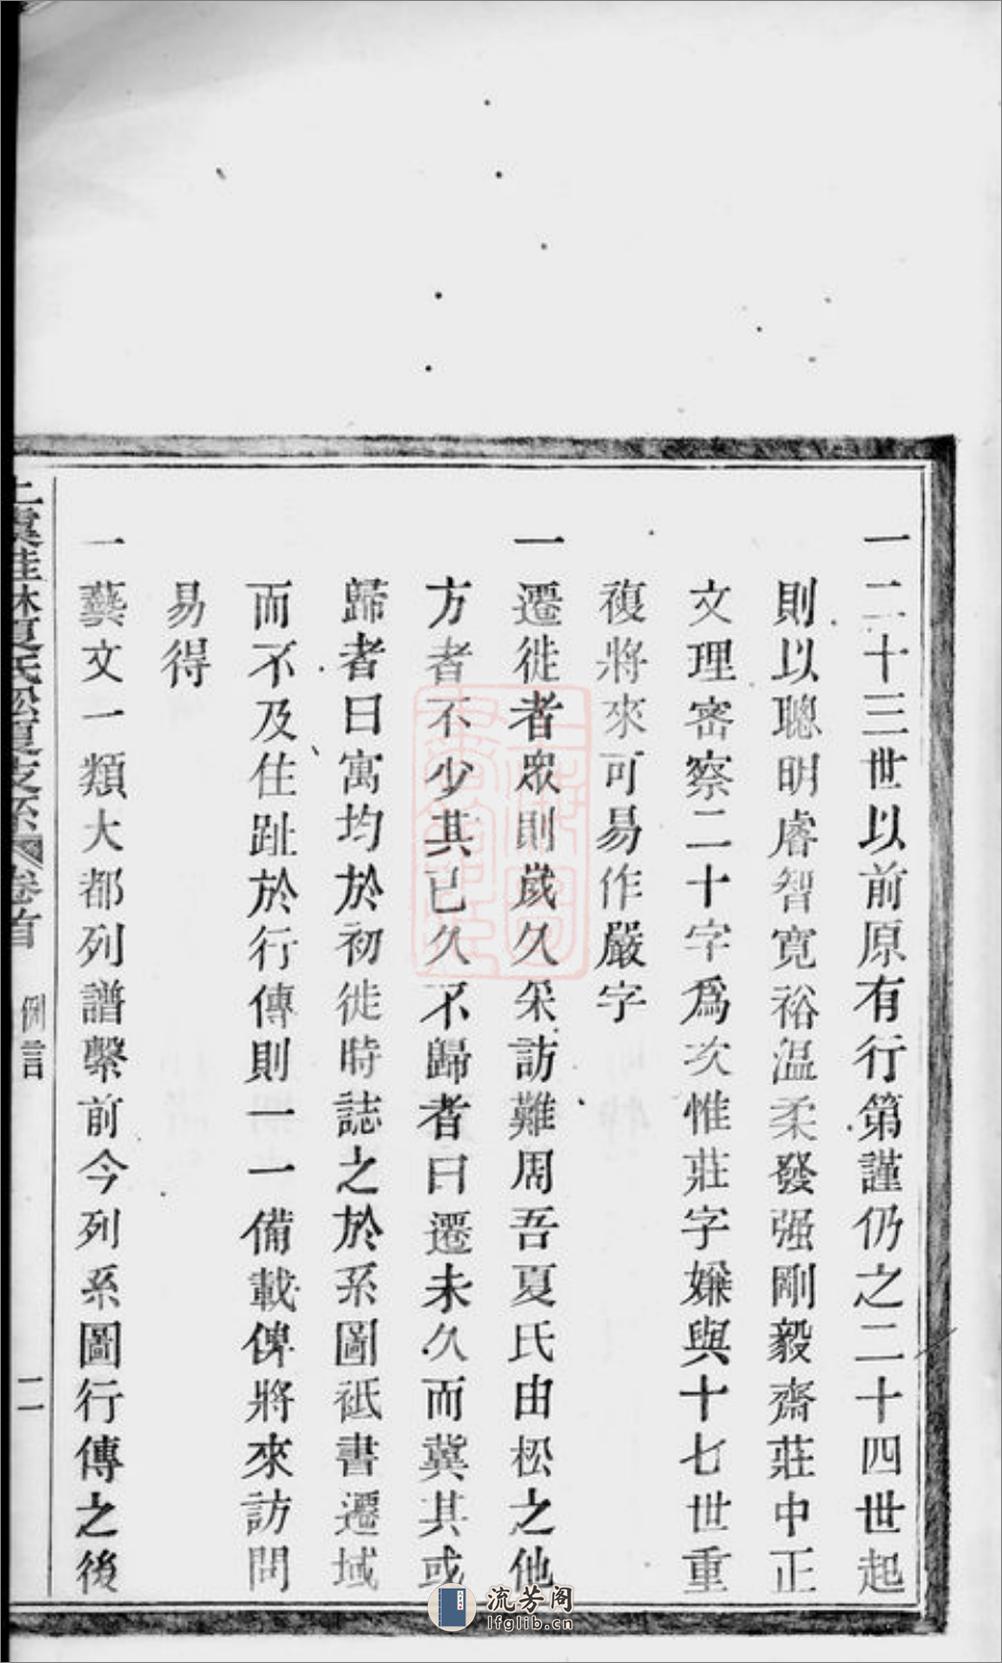 一二十三世以前原有行第謹仍之二十四世起
則以聰明睿智寬裕温柔發强剛毅齋莊中正
文理密察二十字爲次惟莊字嫌與十七世重
複將來可易作嚴字
一遷徙者衆則歲久采訪難周吾夏氏由松之他
方者不少其已久不歸者曰遷未久而冀其或
歸者曰寓均於初徙時誌之於系圖祗書遷域
而不及住趾於行傳則一一備載俾將來訪問
易得
一藝文一類大都列譜繫前今列系圖行傳之後
上虞桂林夏氏松夏支系 卷首 例言 二
流芳阁
lfglib.cn